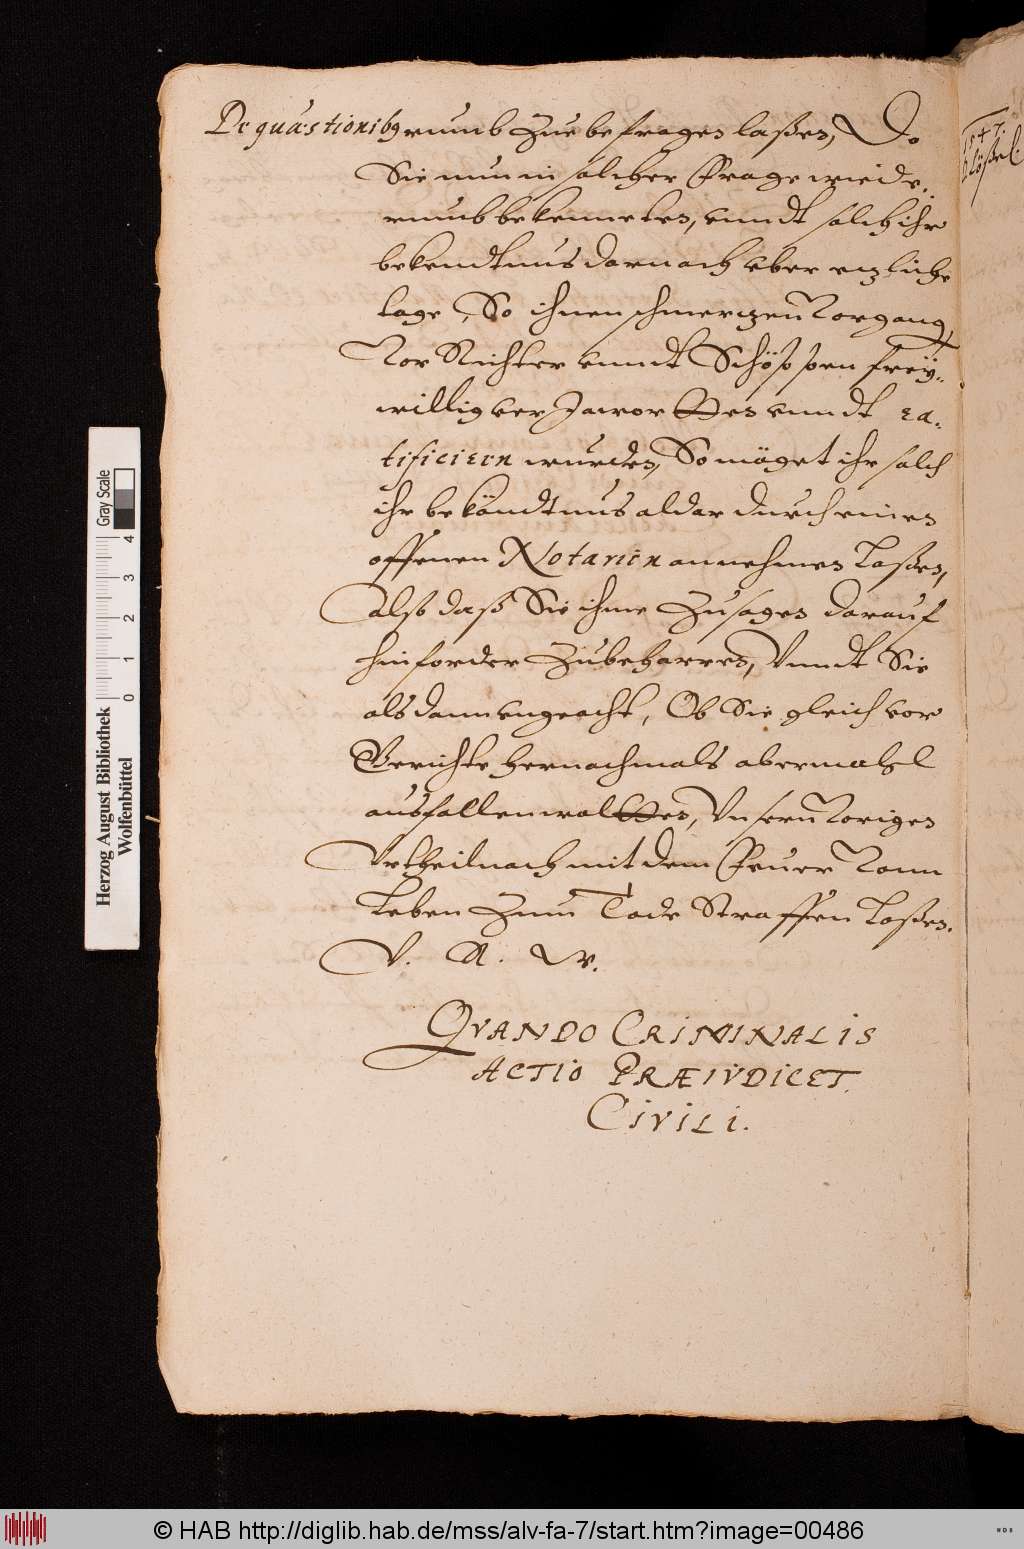 De quæstionib9 rumb Zue befragen laßen, Do
Sie nun in solcher Frage wiede-
rumb bekennethen, vnndt solch ihr
bekendtnus darnach vber etzliche
tage, So ihnen schmerczenn Vorgang,
Vor Richter vnndt Schöppen freÿ-
willig vndt ra-
tificiern wurden, So möget ihr solch
ihr bekändtnus aldar durch einen
offenen Notarien annehmen Laßen,
also daß Sie ihme Zusagen darauf
hinforder Zubeharren, Vnndt Sie
als dann vngeacht, Ob Sie gleich vor
Gerichte hernachmals abermahl
ausfallen wolten, Vnsern Vorigen
Vrtheil nach mit dem Feuer Vom
Leben Zum Tode Straffen Laßen.
V. R. W.
QVANDO CRIMINALIS
ACTIO PRÆIVDICET
CIVILI.
1547.
Gray Scale
0 1 2 3 4
Herzog August Bibliothek
Wolfenbüttel
© HAB http://diglib.hab.de/mss/alv-fa-7/start.htm?image=00486